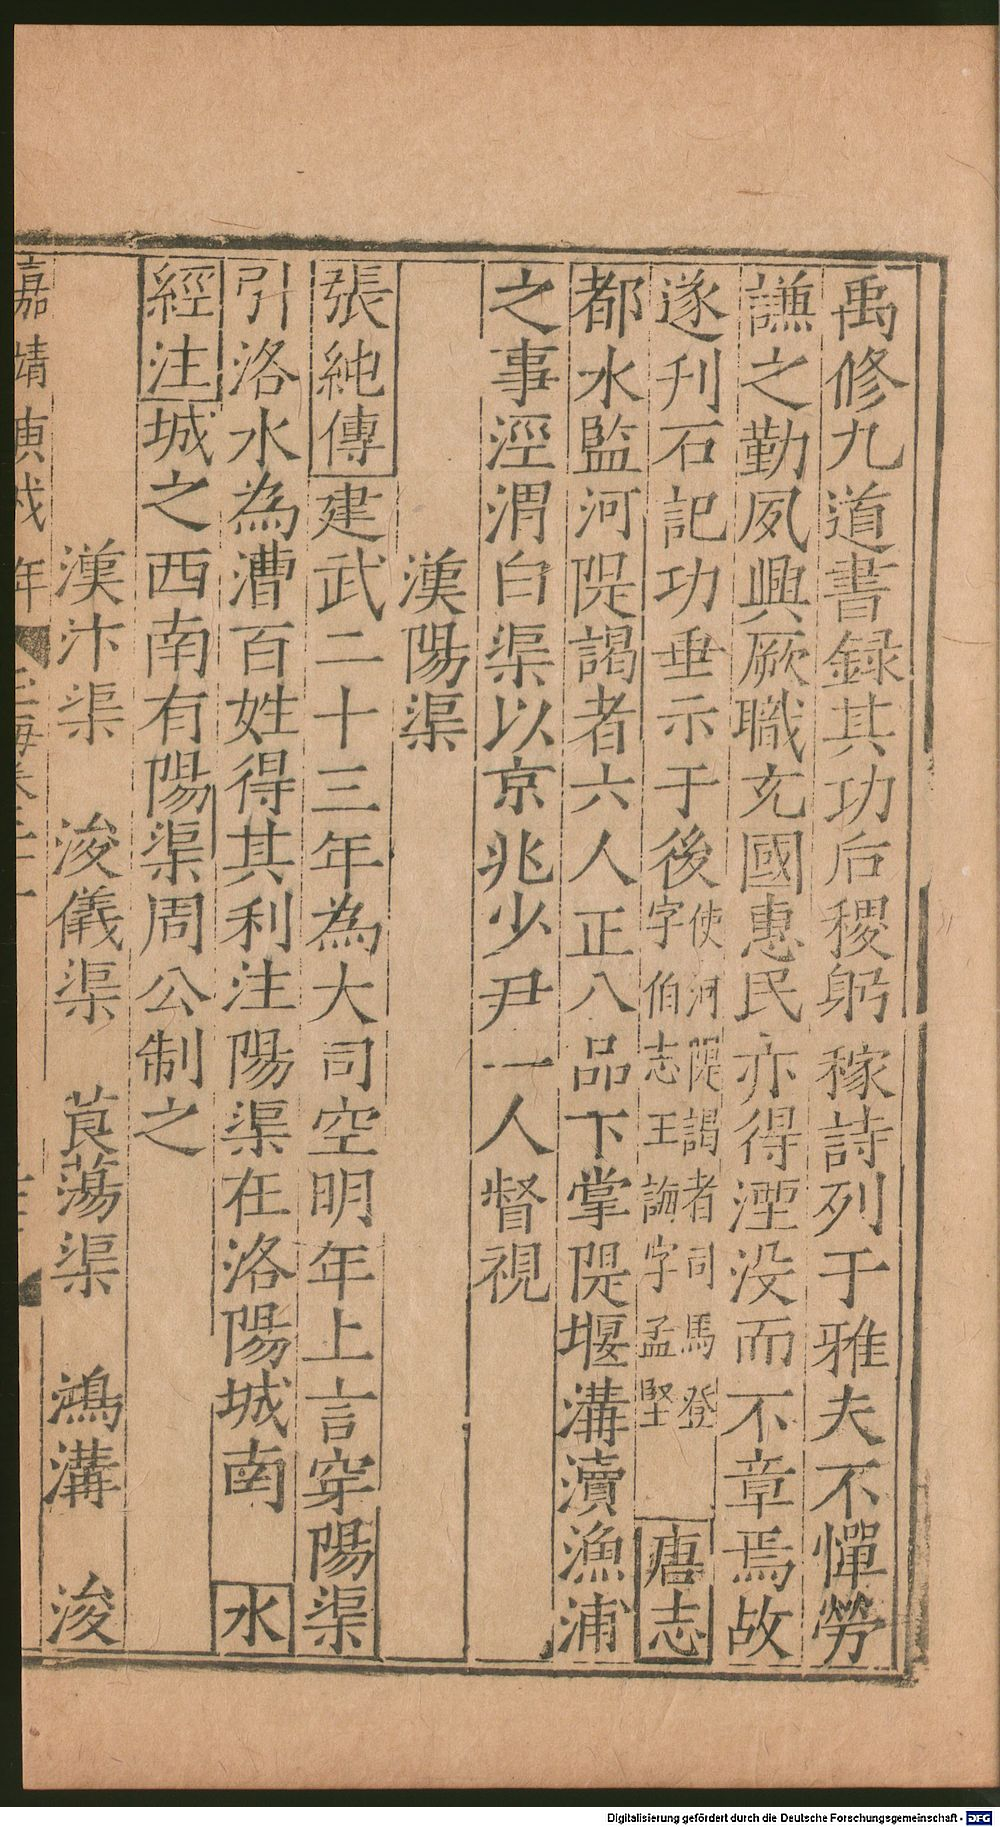 禹修九道書録其功后稷躬稼詩列于雅夫不憚勞
謙之勤夙興厥職充國惠民亦得湮没而不章焉故
遂刋石記功垂示于後使河隄謁者司馬登字伯志王誨字孟堅 唐志
都水監河隄謁者六人正八品下掌隄堰溝瀆漁浦
之事涇渭白渠以京兆少尹一人督視
漢陽渠
張純傳建武二十三年為大司空明年上言穿陽渠
引洛水為漕百姓得其利注陽渠在洛陽城南 水
經注城之西南有陽渠周公制之
漢汴渠 浚儀渠 莨蕩渠 鴻溝 浚
嘉靖庚戌年
Digitalisierung gefördert durch die Deutsche Forschungsgemeinschaft - DFG